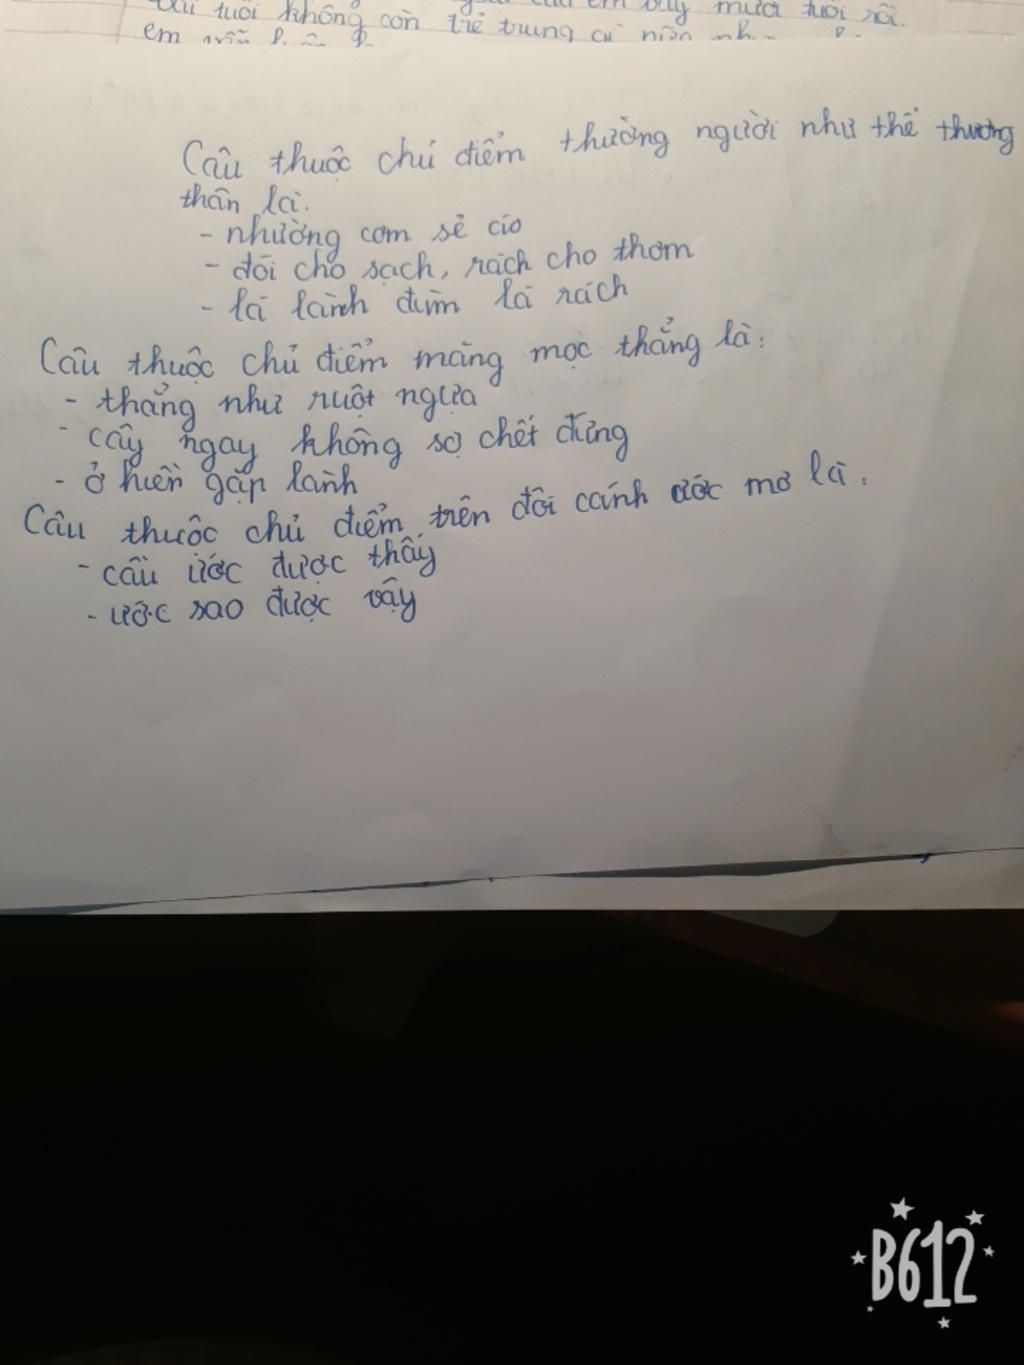 tuổi không còn trẻ trung mươi tuổi rồi.
em
Câu thuộc chủ điểm thường người như thể thương
thân là.
- nhường cơm sẻ cío
- đói cho sạch, rách cho thơm
- lá lành đùm lá rách
Câu thuộc chủ điểm măng mọc thẳng là:
- thẳng như ruột ngựa
- cây ngay không sợ chết đứng
- ở hiền gặp lành
Câu thuộc chủ điểm trên đôi cánh ước mơ là:
- cầu ước được thấy
- ước sao được vậy
B612